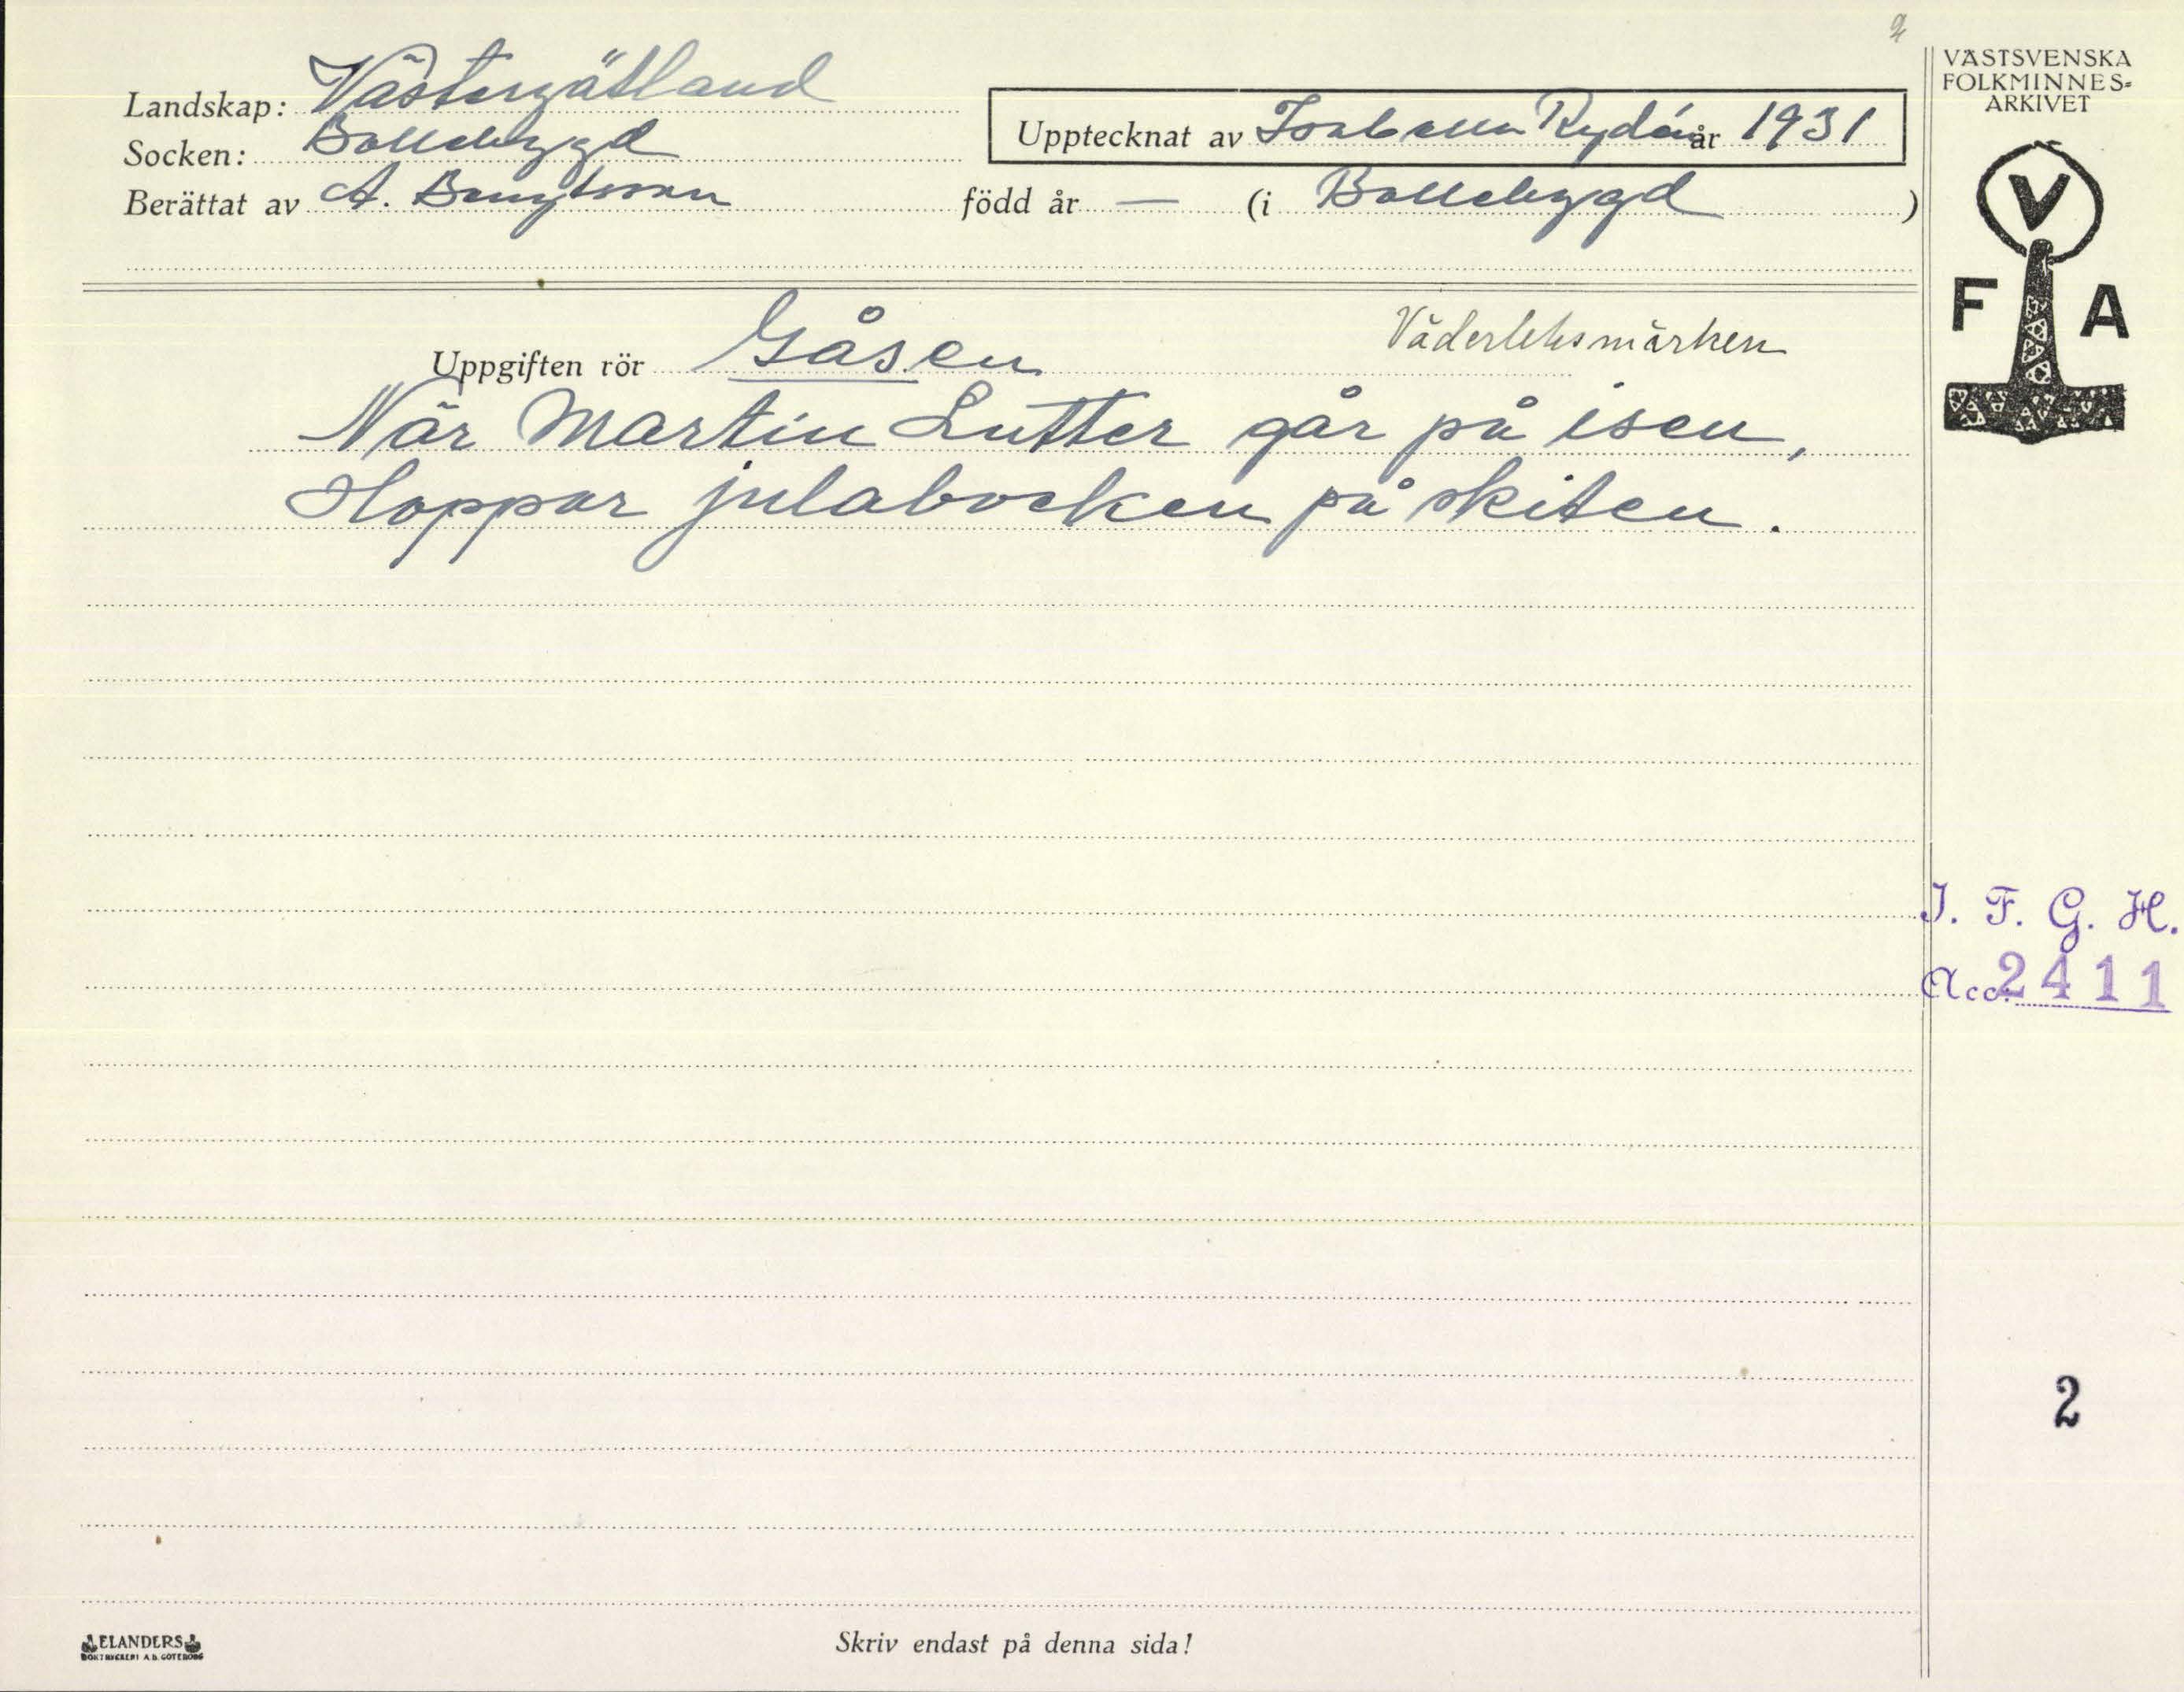 2
Landskap: Västergötland
Socken: Bollebygd
Berättat av A. Bengtsson
Upptecknat av Isabella Rydén år 1931
född år — (i Bollebygd )
Uppgiften rör Gåsen
Väderleksmärken
När Martin Lutter går på isen,
Hoppar julabocken på skiten.
VÄSTSVENSKA
FOLKMINNES-
ARKIVET
V
F A
I. F. G. H.
Acc. 2411
2
Skriv endast på denna sida!
ELANDERS
BOKTRYCKERI A.B. GÖTEBORG